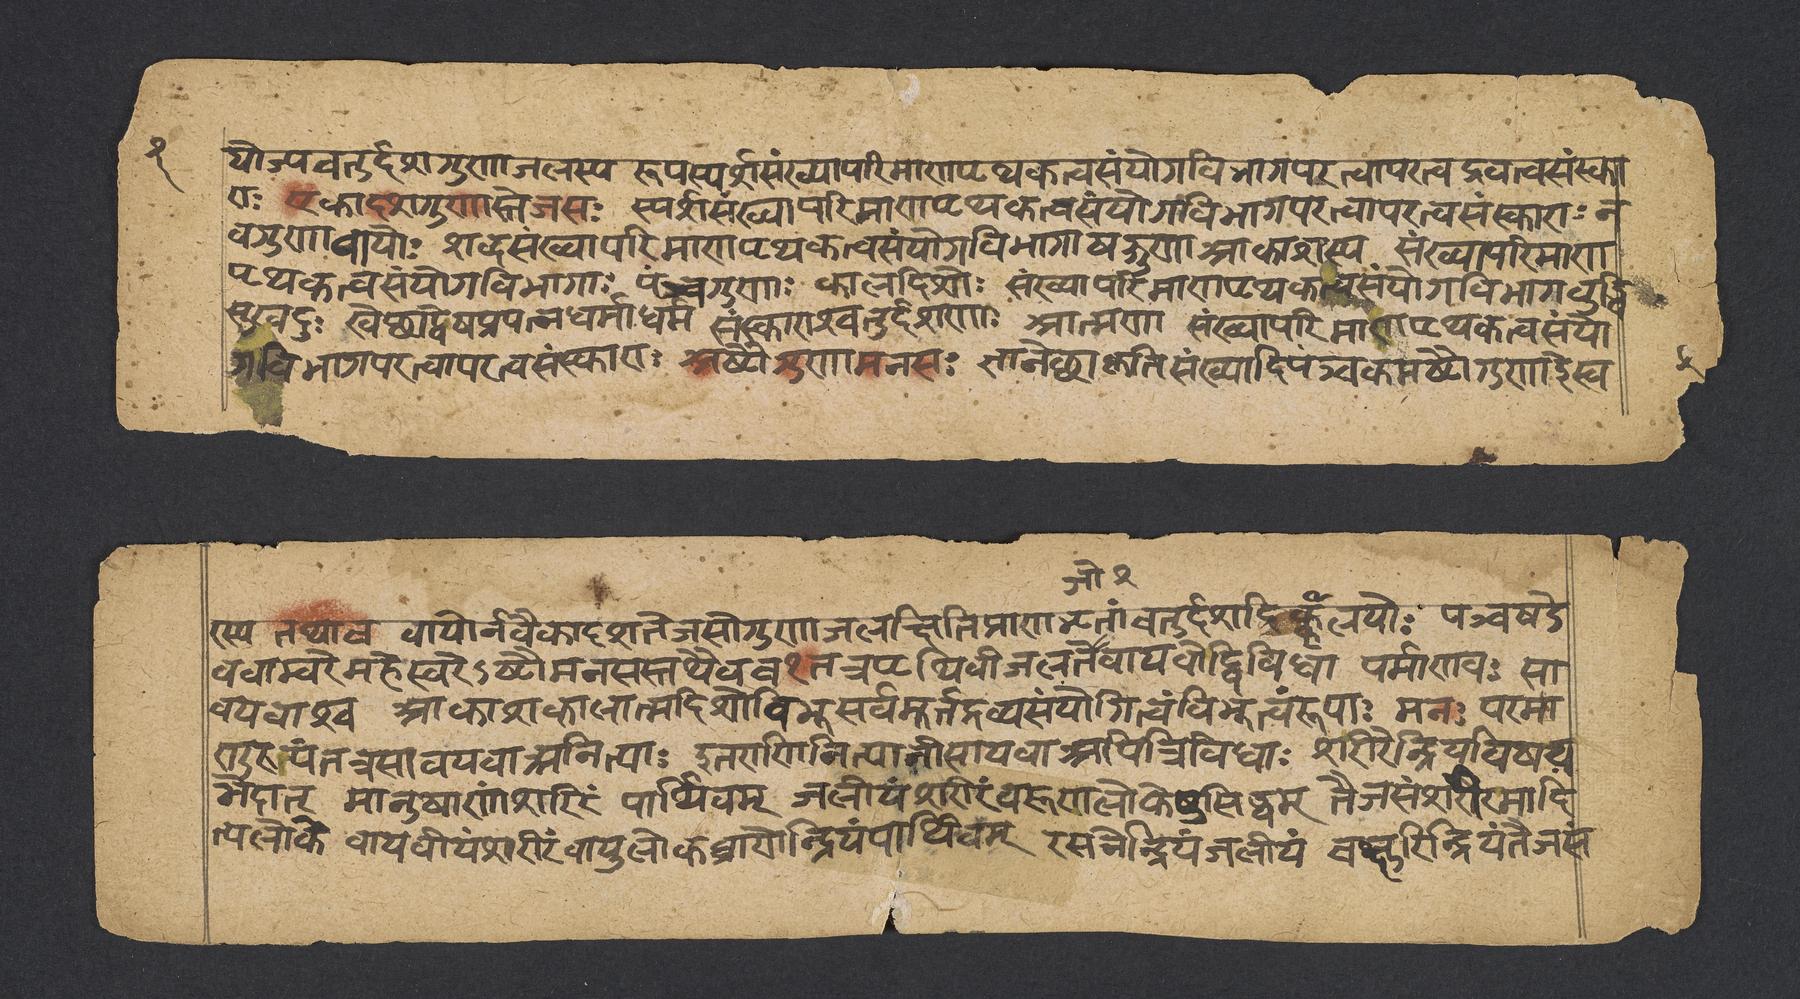 २
यौज्पवतुर्द्दशगुणाजलस्य रूपस्पर्शसंख्यापरिमाणपृथकत्वसंयोगविभागपरत्वापरत्वद्रवत्वसंस्का
राः एकादशगुणास्तेजसः स्पर्शसंख्यापरिमाणपृथकत्वसंयोगविभागपरत्वापरत्वसंस्काराः न
वगुणावायोः शब्दसंख्यापरिमाणपृथकत्वसंयोगविभागाषड्गुणाआकाशस्य संख्यापरिमाण
पृथकत्वसंयोगविभागाः पंञ्चगुणाः कालदिशोः संख्यापरिमाणपृथकत्वसंयोगविभागवुद्धि
सुखदुः खेछाद्वेषप्रयत्नधर्माधर्म संस्काराश्चतुर्द्दशगुणाः आत्मणा संख्यापरिमाणपृथकत्वसंयो
गविभागपरत्वापरत्वसंस्काराः अष्टौगुणामनसः ज्ञानेछाकृतिसंख्यादिपंञ्चकमष्टौगुणाईस्व
औ २
रस्य तथाच वायोर्नवैकादशतेजसोगुणाजलक्षितिप्राणभृतांचतुर्द्दशादिक्कालयोः पञ्चषडे
वचाम्वरेमहेस्वरेऽष्टौमनसस्तथैवच१तत्रपृथिवीजलतेवायवोद्विविधा पर्माणवः सा
वयवाश्च आकाशकालात्मदिशोविभुसर्वमूर्त्तद्रव्यसंयोगित्वंविभुत्वंरूपाः मनः परमा
णुरूपंतत्रसावयवाअनित्याः इतराणिनित्यानीसायवाअपित्रिविधाः शरिरेन्द्रियविषय
भेदात् मानुषाणांशरिरं पार्थिवम् जलीयंशरीरंवरूणलोकेप्रसिद्धम् तैजसंशरीरमादि
त्यलोके वायवीयंशरीरंवायुलोकेघ्राणेन्द्रियंपार्थिवम् रसनेन्द्रियंजलीयं चक्षुरिन्द्रियंतैजस